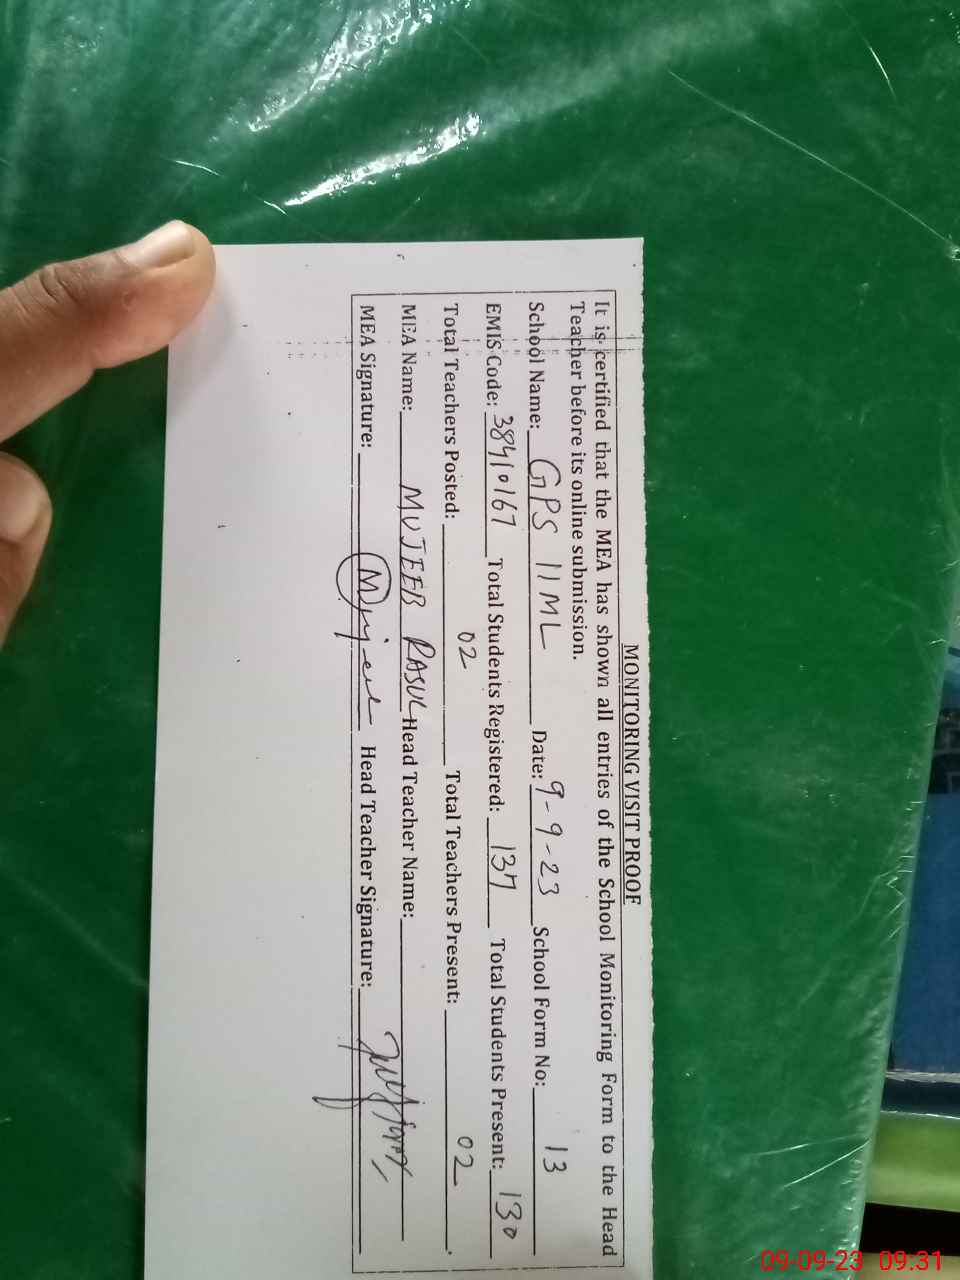 MONITORING VISIT PROOF
It is certified that the MEA has shown all entries of the School Monitoring Form to the Head
Teacher before its online submission.
School Name: GPS 11 ML Date: 9-9-23 School Form No: 13
EMIS Code: 38410167 Total Students Registered: 137 Total Students Present: 130
Total Teachers Posted: 02 Total Teachers Present: 02
MEA Name: MUJEEB RASUL Head Teacher Name:
MEA Signature: Mujeeb Head Teacher Signature:
09-09-23 09:31